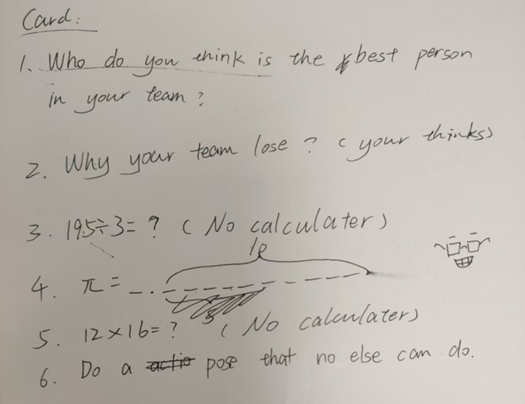 Card:
1. Who do you think is the best person
in your team?
2. Why your team lose? (your thinks)
3. 195÷3=? (No calculater)
10
4. π = _._ _ _ _ _ _ _ _ _ _
5. 12×16=? (No calculaters)
6. Do a actio pose that no else can do.